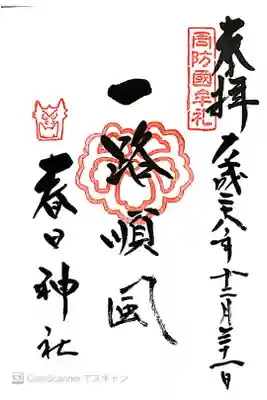 奉拝
周防國牟礼
平成二十八年十二月三十一日
一路順風
春日神社
CamScanner でスキャン